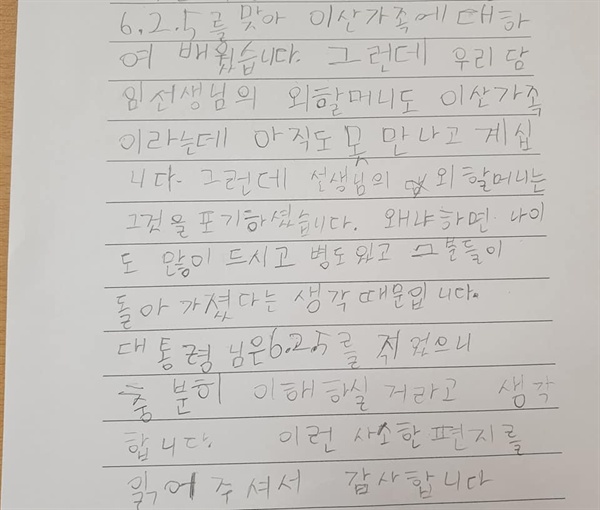 6.2.5를 맞아 이산가족에 대하
여 배웠습니다. 그런데 우리 담
임선생님의 외할머니도 이산가족
이라는데 아직도 못 만나고 계십
니다. 그런데 선생님의 외할머니는
그것을 포기하셨습니다. 왜냐하면 나이
도 많이 드시고 병도 있고 그분들이
돌아가셨다는 생각 때문입니다.
대통령님은 6.2.5를 겪었으니
충분히 이해하실 거라고 생각
합니다. 이런 사소한 편지를
읽어주셔서 감사합니다